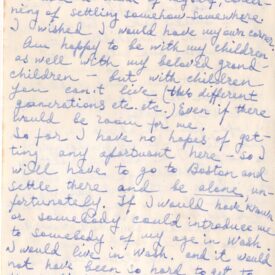 ning of settling somehow somewhere.
I wished I would have my own corner
Am happy to be with my children
as well with my belov'd grand
children – but with children
you can't live (the different
generations etc. etc.) Even if there
would be room for me.
So far I have no hopes of get-
ting any apartment here – so I
will have to go to Boston and
settle there and be alone, un
fortunately. If I would have known
or somebody could introduce me
to somebody of my age in Wash.
I would live in Wash. and it would
not have been so hard to get to